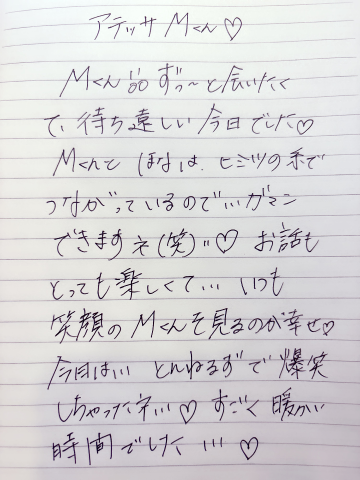 アテッサ Mくん♡
Mくん!!! ずっ〜と会いたく
て、待ち遠しい今日でした♡
Mくんと ほなは、ヒミツの糸で
つながっているので…ガマン
できますネ(笑)"♡ お話も
とっても楽しくて… いつも
笑顔のMくんを見るのが幸せ♡
今日は… とんねるずで爆笑
しちゃったネ…♡ すごく暖かい
時間でした … ♡